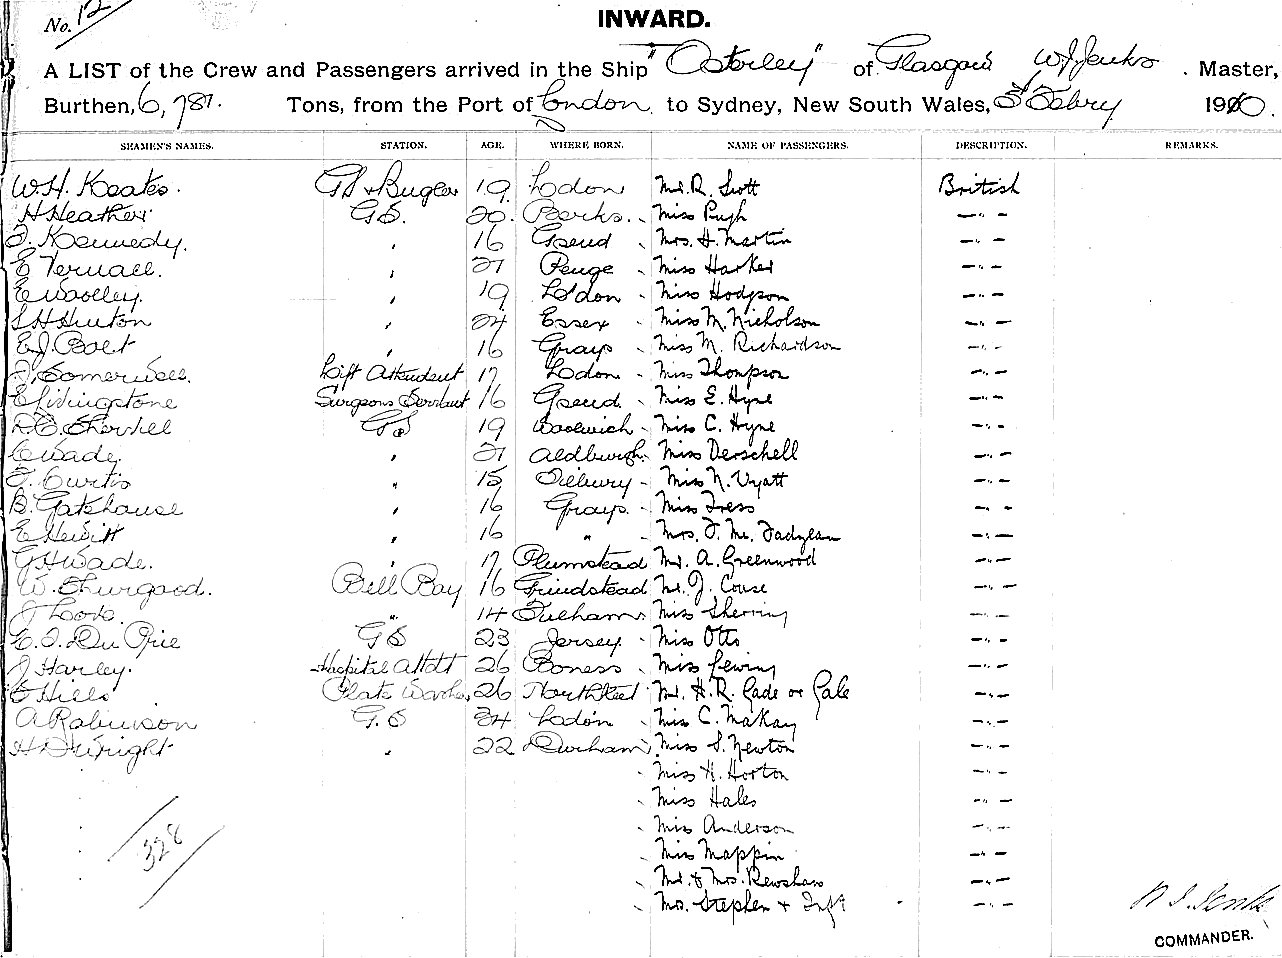 No. 12
INWARD.
A LIST of the Crew and Passengers arrived in the Ship "Osterley" of Glasgow W J Jenks. Master,
Burthen, 6,781. Tons, from the Port of London to Sydney, New South Wales, Febry 1910.
SEAMEN'S NAMES. STATION. AGE. WHERE BORN. NAME OF PASSENGERS. DESCRIPTION. REMARKS.
W.H. Keates. GS & Bugler 19 Lodon Mr. R. Scott British
H Heather GS. 20. Berks. Miss Pugh -"-
Kennedy. " 16 Gseud Mrs. H. Martin -"-
E Vernall. " 21 Penge Miss Harker -"-
E Woolley. " 19 Lo'don Miss Hodgson -"-
S H Hinton " 24 Essex Miss M. Nicholson -"-
E.J. Bolt " 16 Grays Miss M. Richardson -"-
Somerwell. Lift Attendent 17 Lodon Miss Thompson -"-
E Livingstone Surgeons Servant 16 Gseud. Miss E. Hyne -"-
GS 19 Woolwich Miss C. Hyne -"-
C Wade. " 21 Aldburgh. Miss Derschell -"-
Curtis " 15 Tilbury Miss N. Vyatt -"-
B. Gatehouse " 16 Grays. Miss Tress -"-
E Hewitt " 16 " Mrs. J. Mc. -"-
G H Wade. " 17 Plumstead Mr. A. Greenwood -"-
W. Thurgood. Bell Boy 16 Grindstead Mr. J. Couse -"-
J Look. " 14 Fulham. Miss Sherring -"-
Du Prie GS 23 Jersey. Miss Otto -"-
J Harley. Hospital Attdt 26 Boness Miss Lewing -"-
E Hills Plate Washer 26 Northfleet Mr. H.R. Cade or Gale -"-
A Robinson G.S 24 Lodon Miss C. MaKay -"-
H D Wright " 22 Durham Miss S. Newton -"-
Miss H. Horton -"-
Miss Hales -"-
Miss Anderson -"-
Miss Mappin -"-
Mr. & Mrs. Renshaw -"-
Mrs. Stephen & Inft -"-
328
COMMANDER.